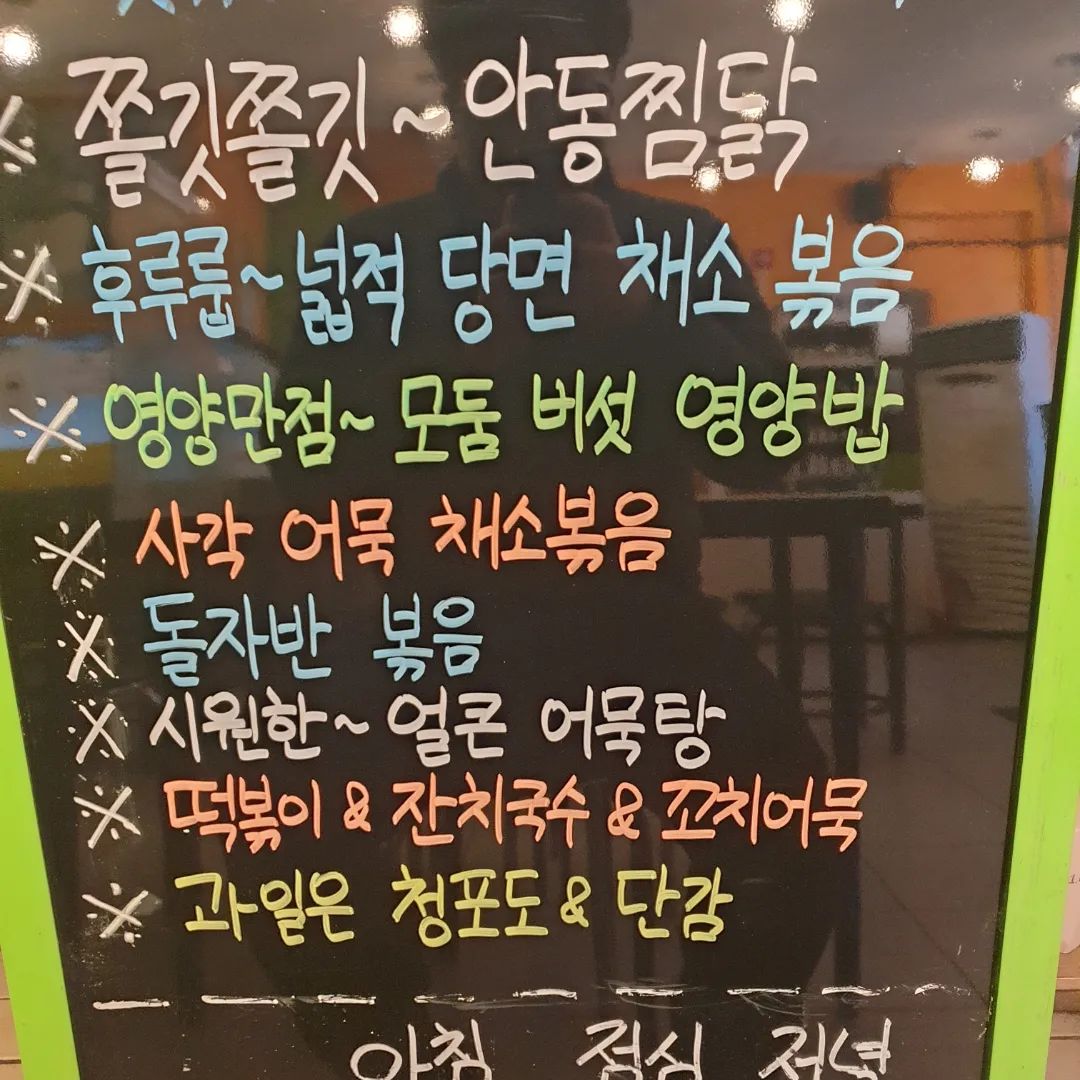 ※ 쫄깃쫄깃~안동찜닭
※ 후루룹~넓적 당면 채소 볶음
※ 영양만점~ 모둠 버섯 영양밥
※ 사각 어묵 채소볶음
※ 돌자반 볶음
※ 시원한~ 얼큰 어묵탕
※ 떡볶이 & 잔치국수 & 꼬치어묵
※ 과일은 청포도 & 단감
아침 점심 저녁